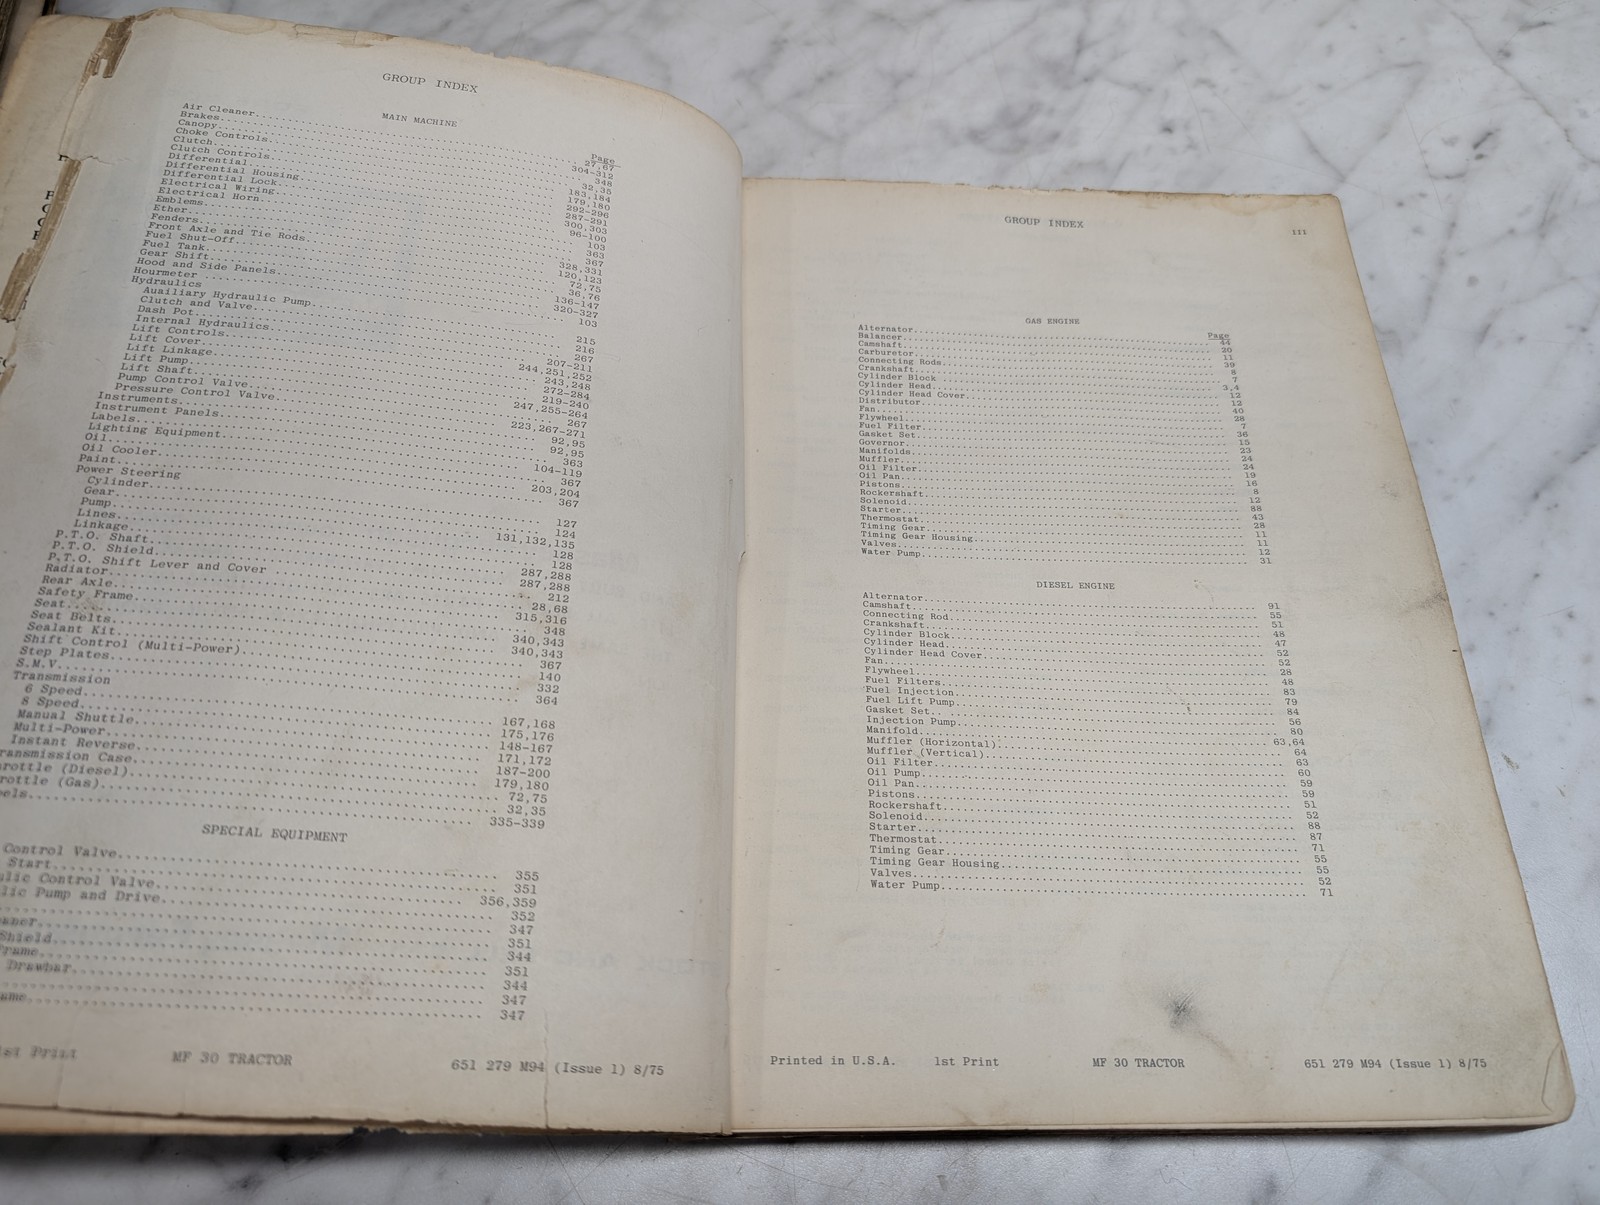 GROUP INDEX
MAIN MACHINE
Page
Air Cleaner 27,67
Brakes 304-312
Canopy 348
Choke Controls 32,35
Clutch 183,184
Clutch Controls 179,180
Differential 292-296
Differential Housing 287-291
Differential Lock 300,303
Electrical Wiring 96-100
Electrical Horn 103
Emblems 363
Ether 367
Fenders 328,331
Front Axle and Tie Rods 120,123
Fuel Shut-Off 72,75
Fuel Tank 36,76
Gear Shift 136-147
Hood and Side Panels 320-327
Hourmeter 103
Hydraulics
Auxiliary Hydraulic Pump 215
Clutch and Valve 216
Dash Pot 267
Internal Hydraulics 207-211
Lift Controls 244,251,252
Lift Cover 243,248
Lift Linkage 272-284
Lift Pump 219-240
Lift Shaft 247,255-264
Pump Control Valve 267
Pressure Control Valve 223,267-271
Instruments 92,95
Instrument Panels 92,95
Labels 363
Lighting Equipment 104-119
Oil 367
Oil Cooler 203,204
Paint 367
Power Steering
Cylinder 127
Gear 124
Pump 131,132,135
Lines 128
Linkage 128
P.T.O. Shaft 287,288
P.T.O. Shield 287,288
P.T.O. Shift Lever and Cover 212
Radiator 28,68
Rear Axle 315,316
Safety Frame 348
Seat 340,343
Seat Belts 340,343
Sealant Kit 367
Shift Control (Multi-Power) 140
Step Plates 332
S.M.V. 364
Transmission
6 Speed 167,168
8 Speed 175,176
Manual Shuttle 148-167
Multi-Power 171,172
Instant Reverse 187-200
ransmission Case 179,180
rottle (Diesel) 72,75
rottle (Gas) 32,35
els 335-339
SPECIAL EQUIPMENT
Control Valve 355
Start 351
ulic Control Valve 356,359
lic Pump and Drive 352
347
eaner 351
Shield 344
Frame 351
Drawbar 344
347
ame 347
1st Print MF 30 TRACTOR 651 279 M94 (Issue 1) 8/75
GROUP INDEX
iii
GAS ENGINE
Page
Alternator 44
Balancer 20
Camshaft 11
Carburetor 39
Connecting Rods 8
Crankshaft 7
Cylinder Block 3,4
Cylinder Head 12
Cylinder Head Cover 12
Distributor 40
Fan 28
Flywheel 7
Fuel Filter 36
Gasket Set 15
Governor 23
Manifolds 24
Muffler 24
Oil Filter 19
Oil Pan 16
Pistons 8
Rockershaft 12
Solenoid 88
Starter 43
Thermostat 28
Timing Gear 11
Timing Gear Housing 11
Valves 12
Water Pump 31
DIESEL ENGINE
Alternator 91
Camshaft 55
Connecting Rod 51
Crankshaft 48
Cylinder Block 47
Cylinder Head 52
Cylinder Head Cover 52
Fan 28
Flywheel 48
Fuel Filters 83
Fuel Injection 79
Fuel Lift Pump 84
Gasket Set 56
Injection Pump 80
Manifold 63,64
Muffler (Horizontal) 64
Muffler (Vertical) 63
Oil Filter 60
Oil Pump 59
Oil Pan 59
Pistons 51
Rockershaft 52
Solenoid 88
Starter 87
Thermostat 71
Timing Gear 55
Timing Gear Housing 55
Valves 52
Water Pump 71
Printed in U.S.A. 1st Print MF 30 TRACTOR 651 279 M94 (Issue 1) 8/75